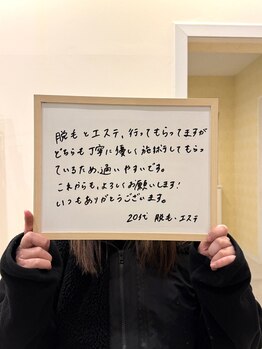 脱毛とエステ、行ってもらってますが
どちらも丁寧に優しく施術してもらっ
ているため、通いやすいです。
これからも、よろしくお願いします！
いつもありがとうございます。
20代 脱毛・エステ